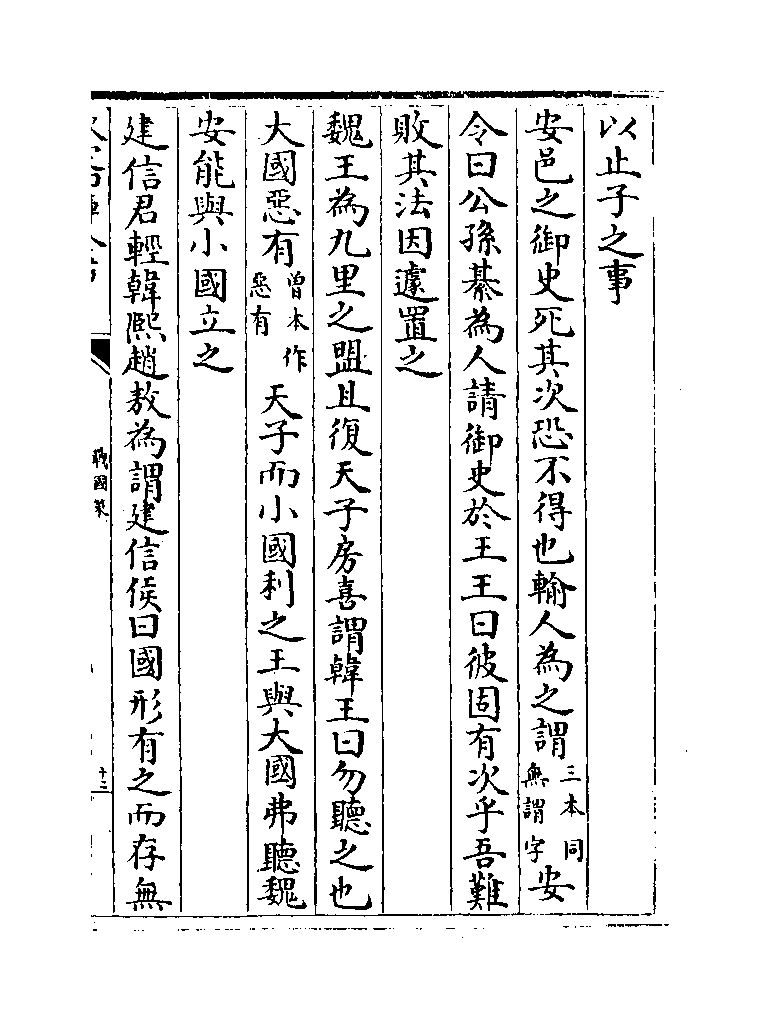 以止子之事
安邑之御史死其次恐不得也輸人為之謂三本同無謂字安
令曰公孫綦為人請御史於王王曰彼固有次乎吾難
敗其法因遽置之
魏王為九里之盟且復天子房喜謂韓王曰勿聽之也
大國惡有曾本作惡有天子而小國利之王與大國弗聽魏
安能與小國立之
建信君輕韓熙趙敖為謂建信侯曰國形有之而存無
戰國策
十二